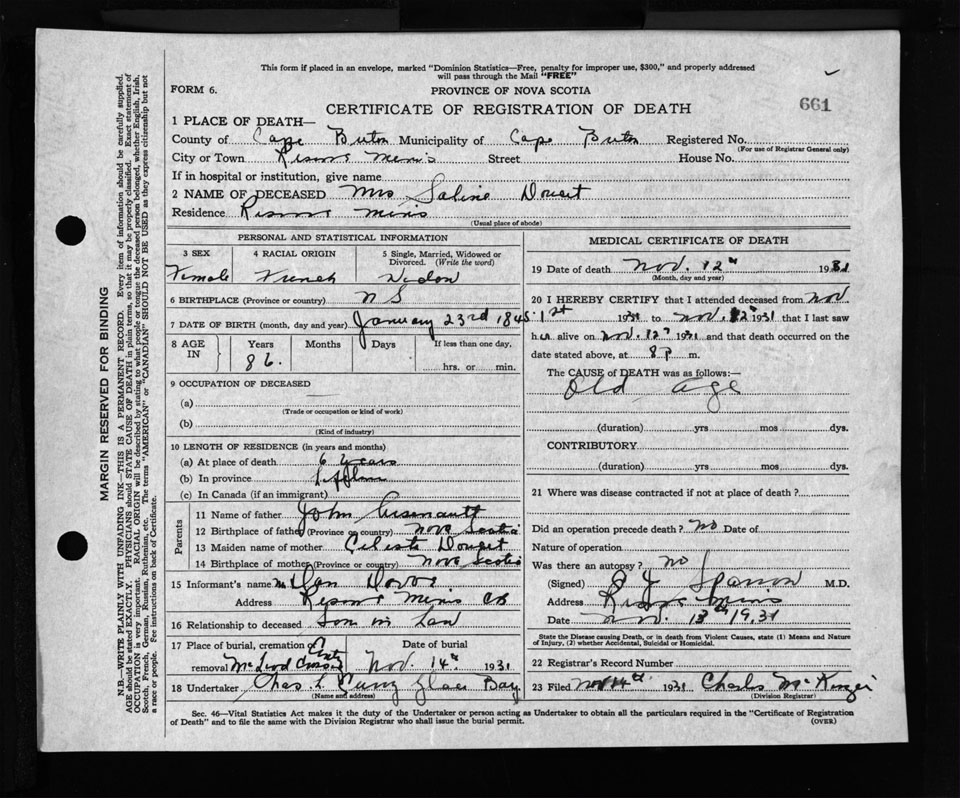 This form if placed in an envelope, marked "Dominion Statistics—Free, penalty for improper use, $300," and properly addressed
will pass through the Mail "FREE"
FORM 6.
PROVINCE OF NOVA SCOTIA
661
CERTIFICATE OF REGISTRATION OF DEATH
1 PLACE OF DEATH—
County of Cape Breton Municipality of Cape Breton Registered No.
(For use of Registrar General only)
City or Town Reserve Mines Street House No.
If in hospital or institution, give name
2 NAME OF DECEASED Mrs Sabine Doucet
Residence Reserve Mines
(Usual place of abode)
PERSONAL AND STATISTICAL INFORMATION
3 SEX 4 RACIAL ORIGIN 5 Single, Married, Widowed or Divorced. (Write the word)
Female French Widow
6 BIRTHPLACE (Province or country) N S
7 DATE OF BIRTH (month, day and year) January 23rd 1845
8 AGE IN Years Months Days If less than one day.
86. hrs. or min.
9 OCCUPATION OF DECEASED
(a)
(Trade or occupation or kind of work)
(b)
(Kind of industry)
10 LENGTH OF RESIDENCE (in years and months)
(a) At place of death 6 years
(b) In province
(c) In Canada (if an immigrant)
Parents
11 Name of father John
12 Birthplace of father (Province or country) Nova Scotia
13 Maiden name of mother Celeste Doucet
14 Birthplace of mother (Province or country) Nova Scotia
15 Informant's name Dan
Address Reserve Mines CB
16 Relationship to deceased Son in Law
17 Place of burial, cremation or removal McLeod Date of burial Nov. 14th 1931
18 Undertaker Chas. L Glace Bay
(Name and address)
MEDICAL CERTIFICATE OF DEATH
19 Date of death Nov. 12th 1931
(Month, day and year)
20 I HEREBY CERTIFY that I attended deceased from Nov
1st 1931 to Nov. 12th 1931 that I last saw
her alive on Nov. 12th 1931 and that death occurred on the
date stated above, at 8 p m.
The CAUSE of DEATH was as follows:—
Old age
(duration) yrs mos dys.
CONTRIBUTORY
(duration) yrs. mos. dys.
21 Where was disease contracted if not at place of death?
Did an operation precede death? No Date of
Nature of operation
Was there an autopsy? No
(Signed) M.D.
Address Reserve Mines
Date Nov. 13th 1931
State the Disease causing Death, or in death from Violent Causes, state (1) Means and Nature
of Injury, (2) whether Accidental, Suicidal or Homicidal.
22 Registrar's Record Number
23 Filed Nov 14th 1931 Charles McKenzie
(Division Registrar)
Sec. 46—Vital Statistics Act makes it the duty of the Undertaker or person acting as Undertaker to obtain all the particulars required in the "Certificate of Registration
of Death" and to file the same with the Division Registrar who shall issue the burial permit.
(OVER)
MARGIN RESERVED FOR BINDING
N.B.—WRITE PLAINLY WITH UNFADING INK—THIS IS A PERMANENT RECORD. Every item of information should be carefully supplied.
AGE should be stated EXACTLY. PHYSICIANS should STATE CAUSE OF DEATH in plain terms, so that it may be properly classified. Exact statement of
OCCUPATION is very important. RACIAL ORIGIN will be described by stating to what people or tongue the deceased person belonged, whether English, Irish,
Scotch, French, German, Russian, Ruthenian, etc. The terms "AMERICAN" or "CANADIAN" SHOULD NOT BE USED as they express citizenship but not
a race or people. See instructions on back of Certificate.